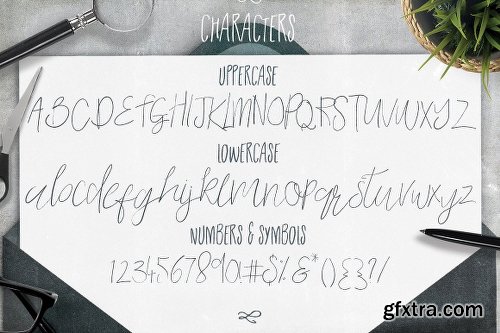 CHARACTERS
UPPERCASE
ABCDEFGHIJKLMNOPQRSTUVWXYZ
LOWERCASE
abcdefghijklmnopqrstuvwxyz
NUMBERS & SYMBOLS
1234567890!#$%&*(){}?/
gfxtra.com